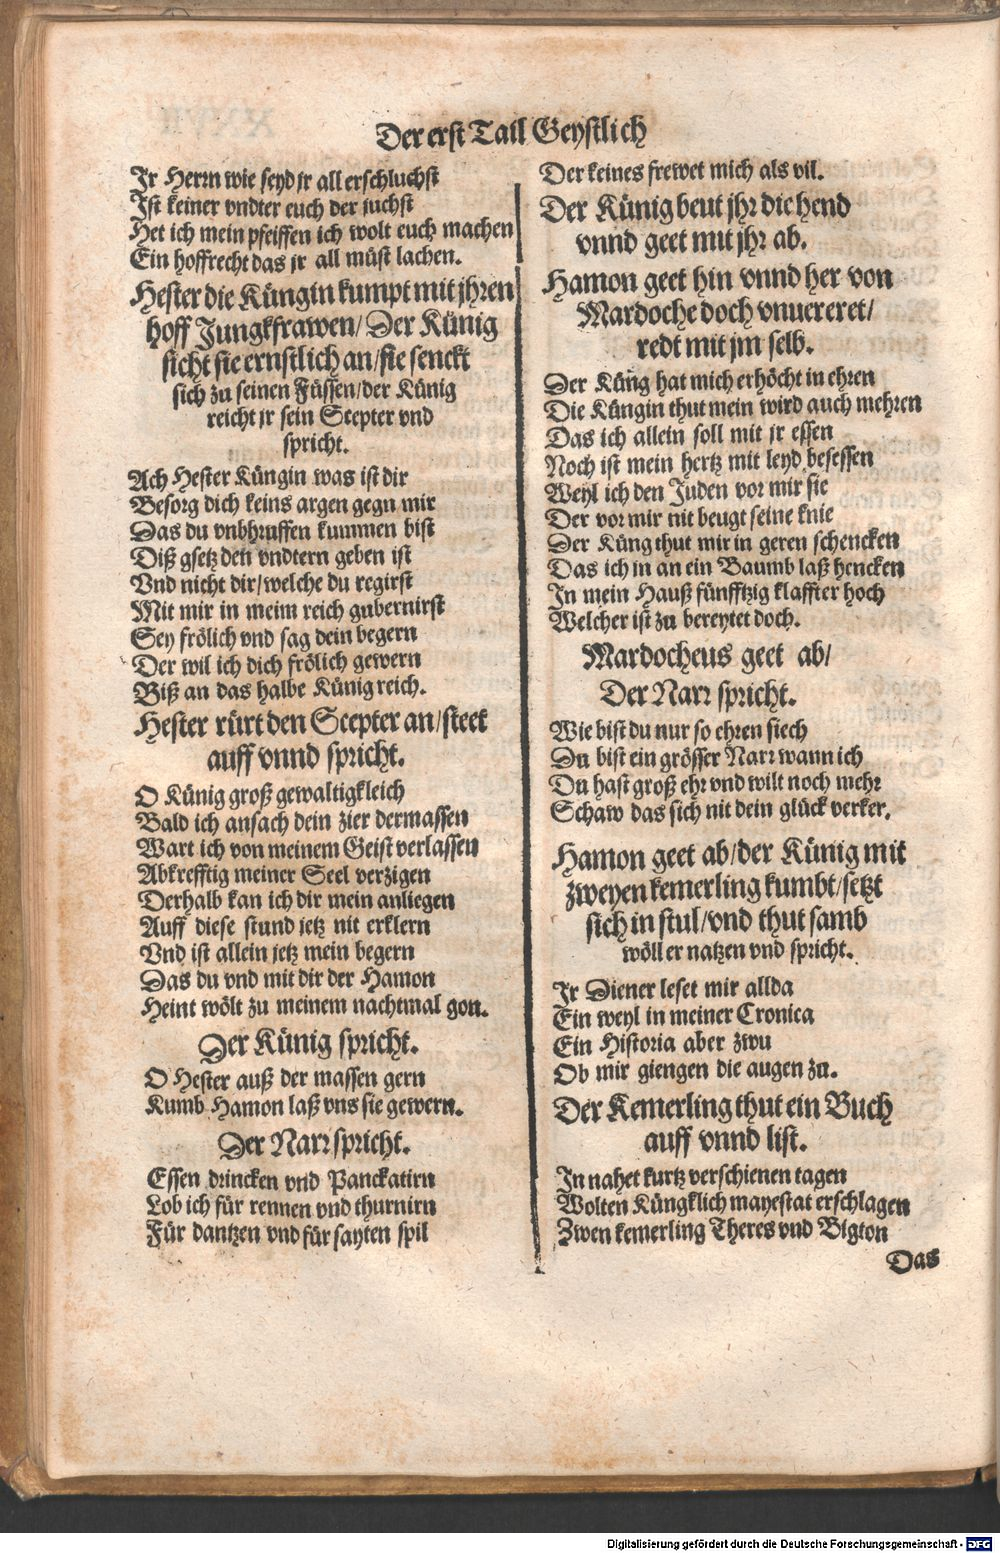 Der erst Tail Geystlich
Jr Herrn wie seyd jr all erschluchst
Jst keiner vndter euch der juchst
Het ich mein pfeiffen ich wolt euch machen
Ein hoffrecht das jr all müst lachen.
Hester die Küngin kumpt mit jhren
hoff Jungkfrawen/ Der Künig
sicht sie ernstlich an/ sie senckt
sich zu seinen Füssen/ der Künig
reicht jr sein Scepter vnd
spricht.
Ach Hester Küngin was ist dir
Besorg dich keins argen gegn mir
Das du vnbhruffen kummen bist
Diß gsetz den vndtern geben ist
Vnd nicht dir/ welche du regirst
Mit mir in meim reich gubernirst
Sey frölich vnd sag dein begern
Der wil ich dich frölich gewern
Biß an das halbe Künigreich.
Hester rürt den Scepter an/ steet
auff vnnd spricht.
O Künig groß gewaltigkleich
Bald ich ansach dein zier dermassen
Wart ich von meinem Geist verlassen
Abkrefftig meiner Seel verzigen
Derhalb kan ich dir mein anliegen
Auff diese stund jetz nit erklern
Vnd ist allein jetz mein begern
Das du vnd mit dir der Hamon
Heint wölt zu meinem nachtmal gon.
Der Künig spricht.
O Hester auß der massen gern
Kumb Hamon laß vns sie gewern.
Der Narr spricht.
Essen drincken vnd Panckatirn
Lob ich für rennen vnd thurnirn
Für dantzen vnd für sayten spil
Der keines frewet mich als vil.
Der Künig beut jhr die hend
vnnd geet mit jhr ab.
Hamon geet hin vnnd her von
Mardoche doch vnuereret/
redt mit jm selb.
Der Küng hat mich erhöcht in ehren
Die Küngin thut mein wird auch mehren
Das ich allein soll mit jr essen
Noch ist mein hertz mit leyd besessen
Weyl ich den Juden vor mir sie
Der vor mir nit beugt seine knie
Der Küng thut mir in geren schencken
Das ich in an ein Baumb laß hencken
In mein Hauß fünfftzig klaffter hoch
Welcher ist zu bereytet doch.
Mardocheus geet ab/
Der Narr spricht.
Wie bist du nur so ehren siech
Du bist ein grösser Narr wann ich
Du hast groß ehr vnd wilt noch mehr
Schaw das sich nit dein glück verker.
Hamon geet ab/ der Künig mit
zweyen kemerling kumbt/ setzt
sich in stul/ vnd thut samb
wöll er natzen vnd spricht.
Jr Diener leset mir allda
Ein weyl in meiner Cronica
Ein Historia aber zwu
Ob mir giengen die augen zu.
Der Kemerling thut ein Buch
auff vnnd list.
In nahet kurtz verschienen tagen
Wolten Küngklich mayestat erschlagen
Zwen kemerling Theres vnd Bigton
Das
Digitalisierung gefördert durch die Deutsche Forschungsgemeinschaft - DFG